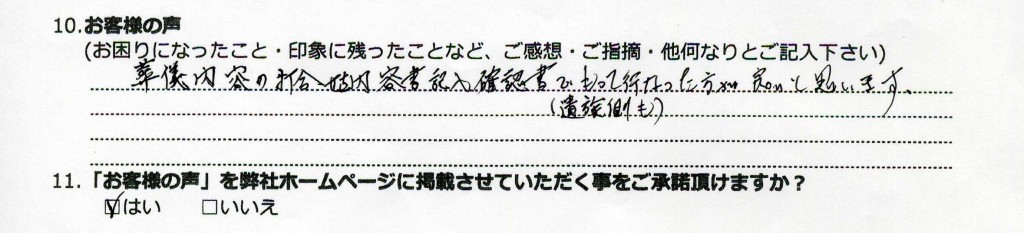 10.お客様の声
(お困りになったこと・印象に残ったことなど、ご感想・ご指摘・他何なりとご記入下さい)
葬儀内容の打合せは内容書記入確認書でもって行なった方が良いと思います。
(遺族側も)
11.「お客様の声」を弊社ホームページに掲載させていただく事をご承諾頂けますか？
☑はい　□いいえ